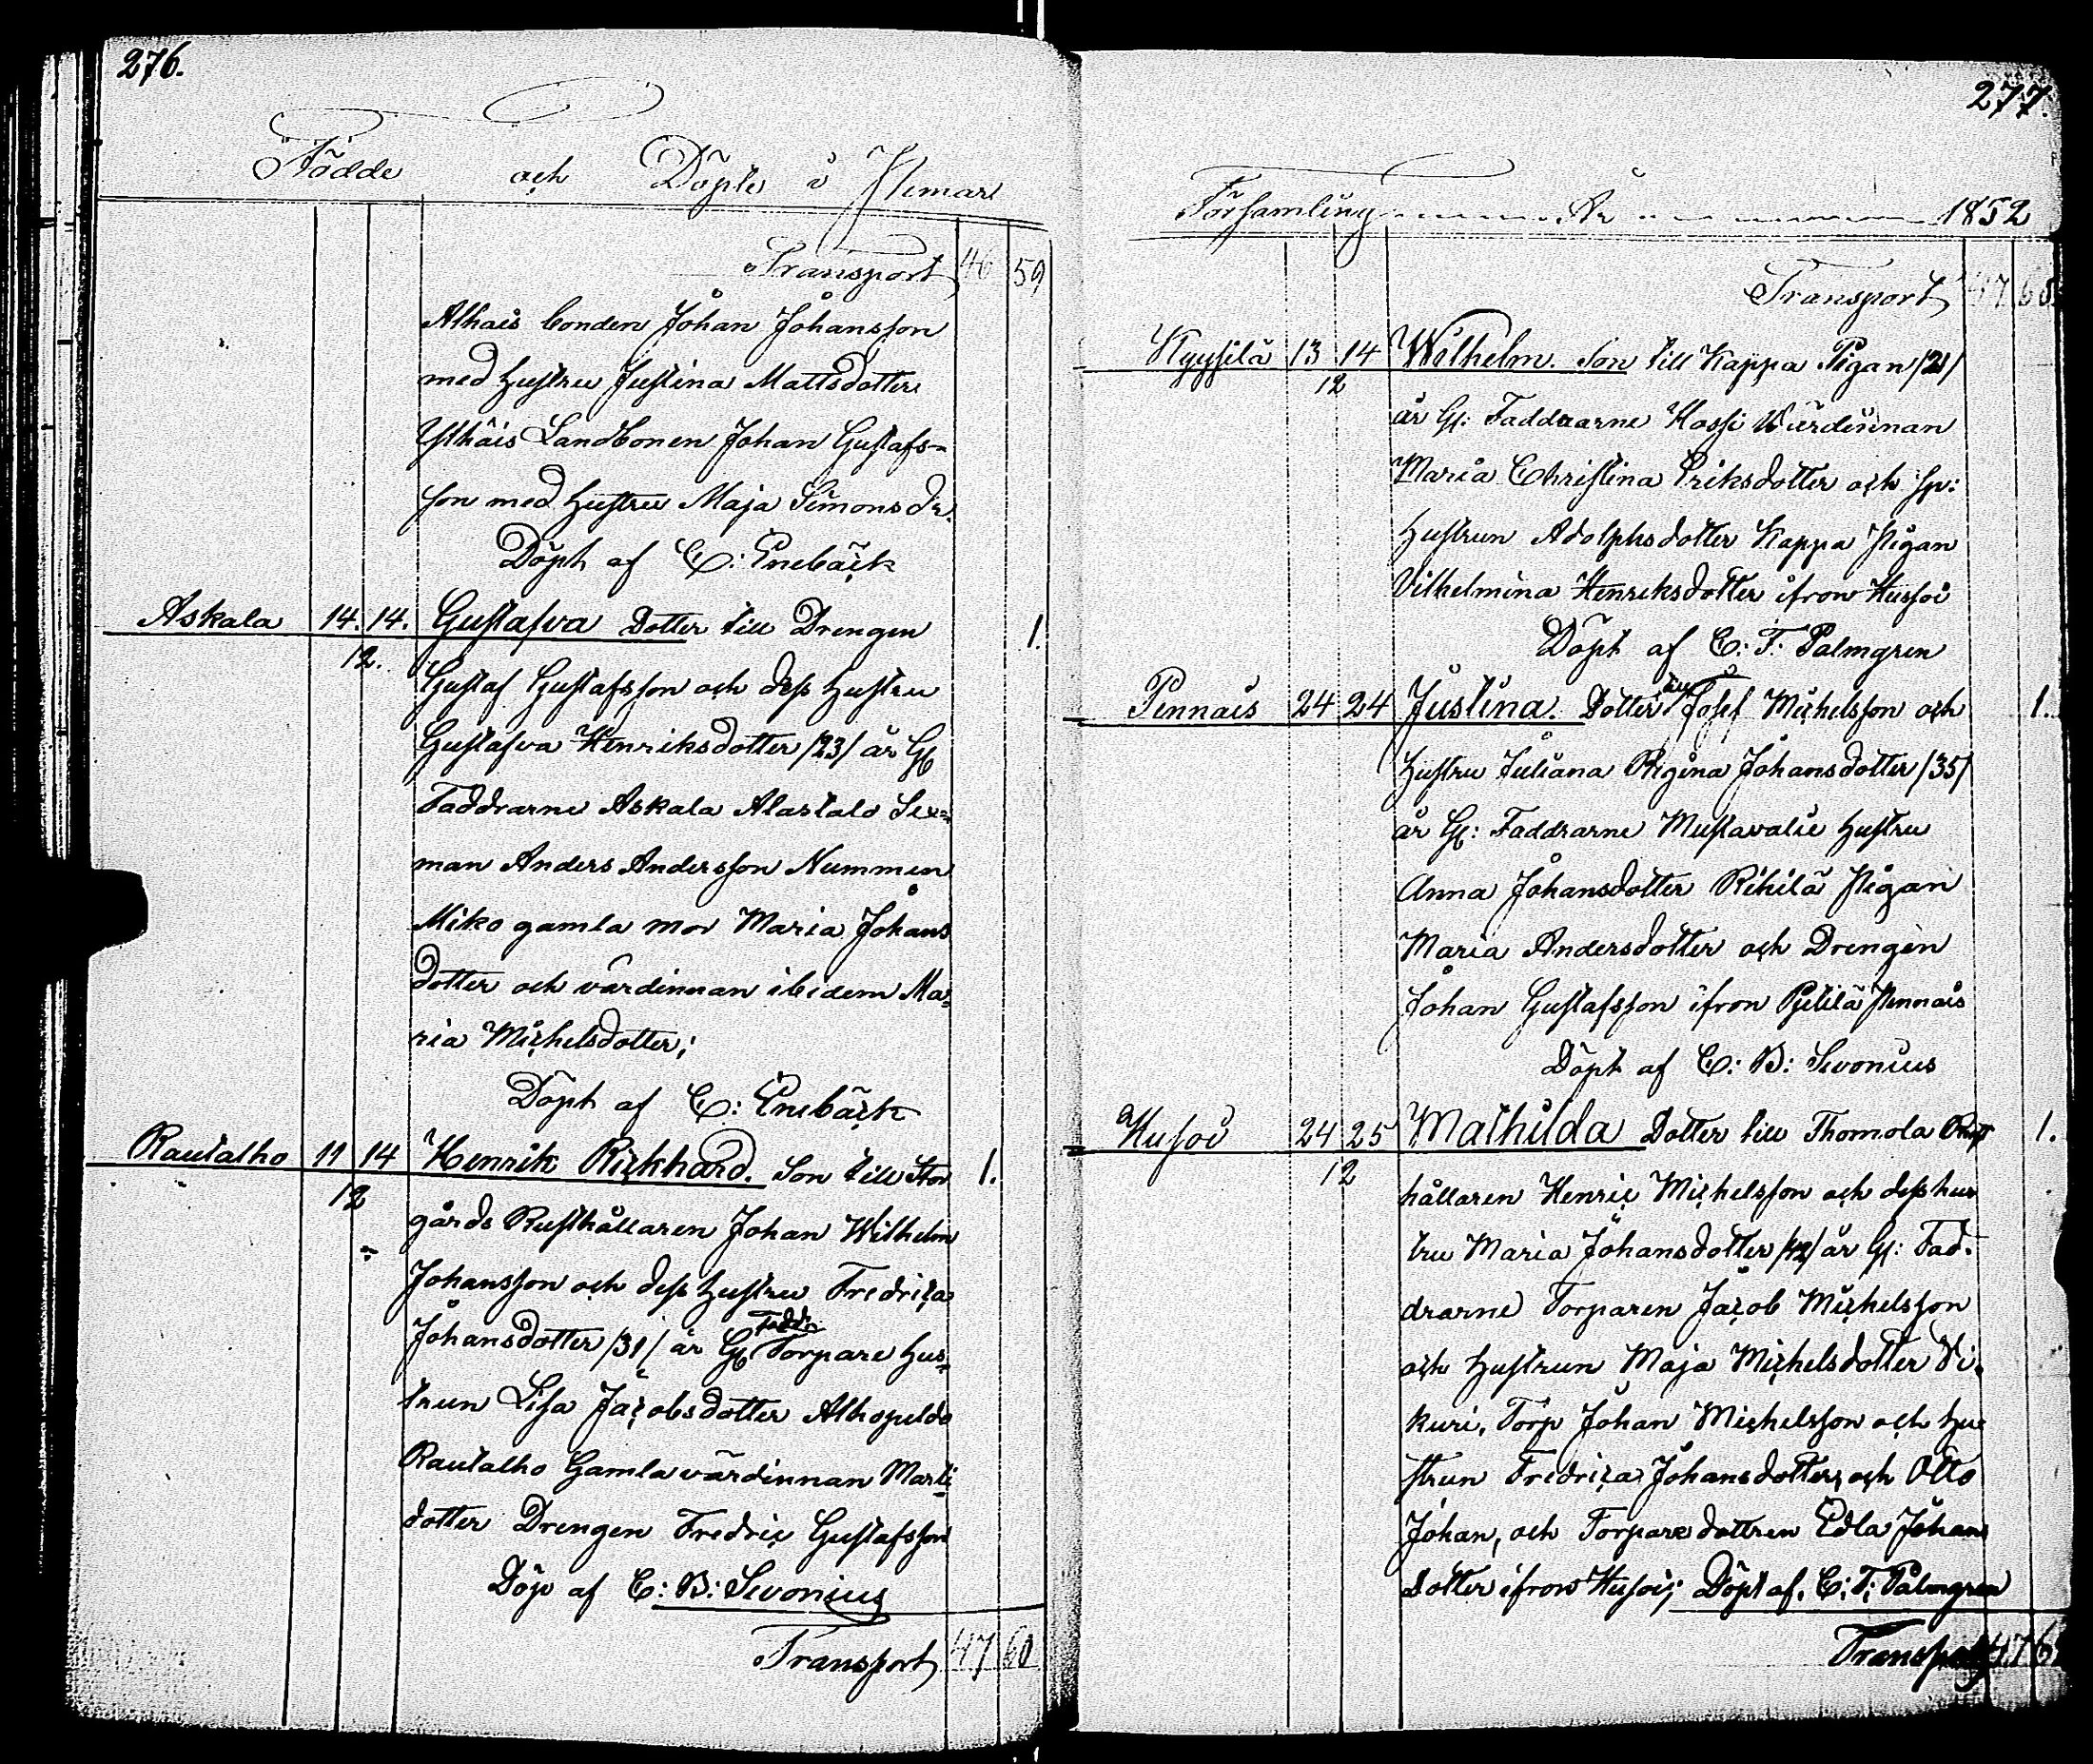 276.
Födde och Döpte i Nemari
Transport 46 59
Alhais bonden Johan Johansson
med hustru Justina Mattsdotter
Ylhäis Landbonen Johan Gustafs-
son med hustru Maja Simonsdr.
Döpt af C: Enebäck
Askala 14. 14. Gustafva Dotter till Drengen 1.
12. Gustaf Gustafsson och dess hustru
Gustafva Henriksdotter /23/ år Gl
Faddrarne Askala Alastalo Sex=
man Anders Andersson Nummen
Miko gamla mor Maria Johans
dotter och värdinnan ibidem Ma=
ria Michelsdotter;
Döpt af C: Enebäck
Rautalho 11 14 Henrik Rickhard. Son till Stor 1.
12 gårds Rusthållaren Johan Wilhelm
Johansson och dess hustru Fredrica
Johansdotter /31/ år Gl Faddr: Torpare hus=
trun Lisa Jacobsdotter Alhopeldo
Rautalho Gamla värdinnan Marti
dotter Drengen Fredric Gustafsson
Döp af C: B: Sevonius
Transport 47 60
277.
Församling År 1852
Transport 47 60
Kyysilä 13 14 Wilhelm. Son till Kappa Pigan /21/
12 år Gl: Faddrarne Kossi Värdinnan
Maria Christina Eriksdotter och Sp:
hustrun Adolphsdotter Kappa Pigan
Vilhelmina Henriksdotter ifron Hussoi
Döpt af C: F: Palmgren
Pennais 24 24 Justina. Dotter till Josef Michelsson och 1.
hustru Juliana Regina Johansdotter /35/
år Gl: Faddrarne Mustavalie hustru
Anna Johansdotter Rihilä Pigan
Maria Andersdotter och Drengen
Johan Gustafsson ifron Pietilä Pennais
Döpt af C: B: Sevonius
Husoi 24 25 Mathilda Dotter till Thomola Rust 1.
12 hållaren Henric Michelsson och dess hus
tru Maria Johansdotter /42/ år Gl: Fad-
drarne Torparen Jacob Michelsson
och hustrun Maja Michelsdotter Vi-
kuri, Torp Johan Michelsson och hu
strun Fredrica Johansdotter, och Otto
Johan, och Torpare dottren Edla Johans
dotter ifron Husoi; Döpt af. C: F: Palmgren
Transport 47 6